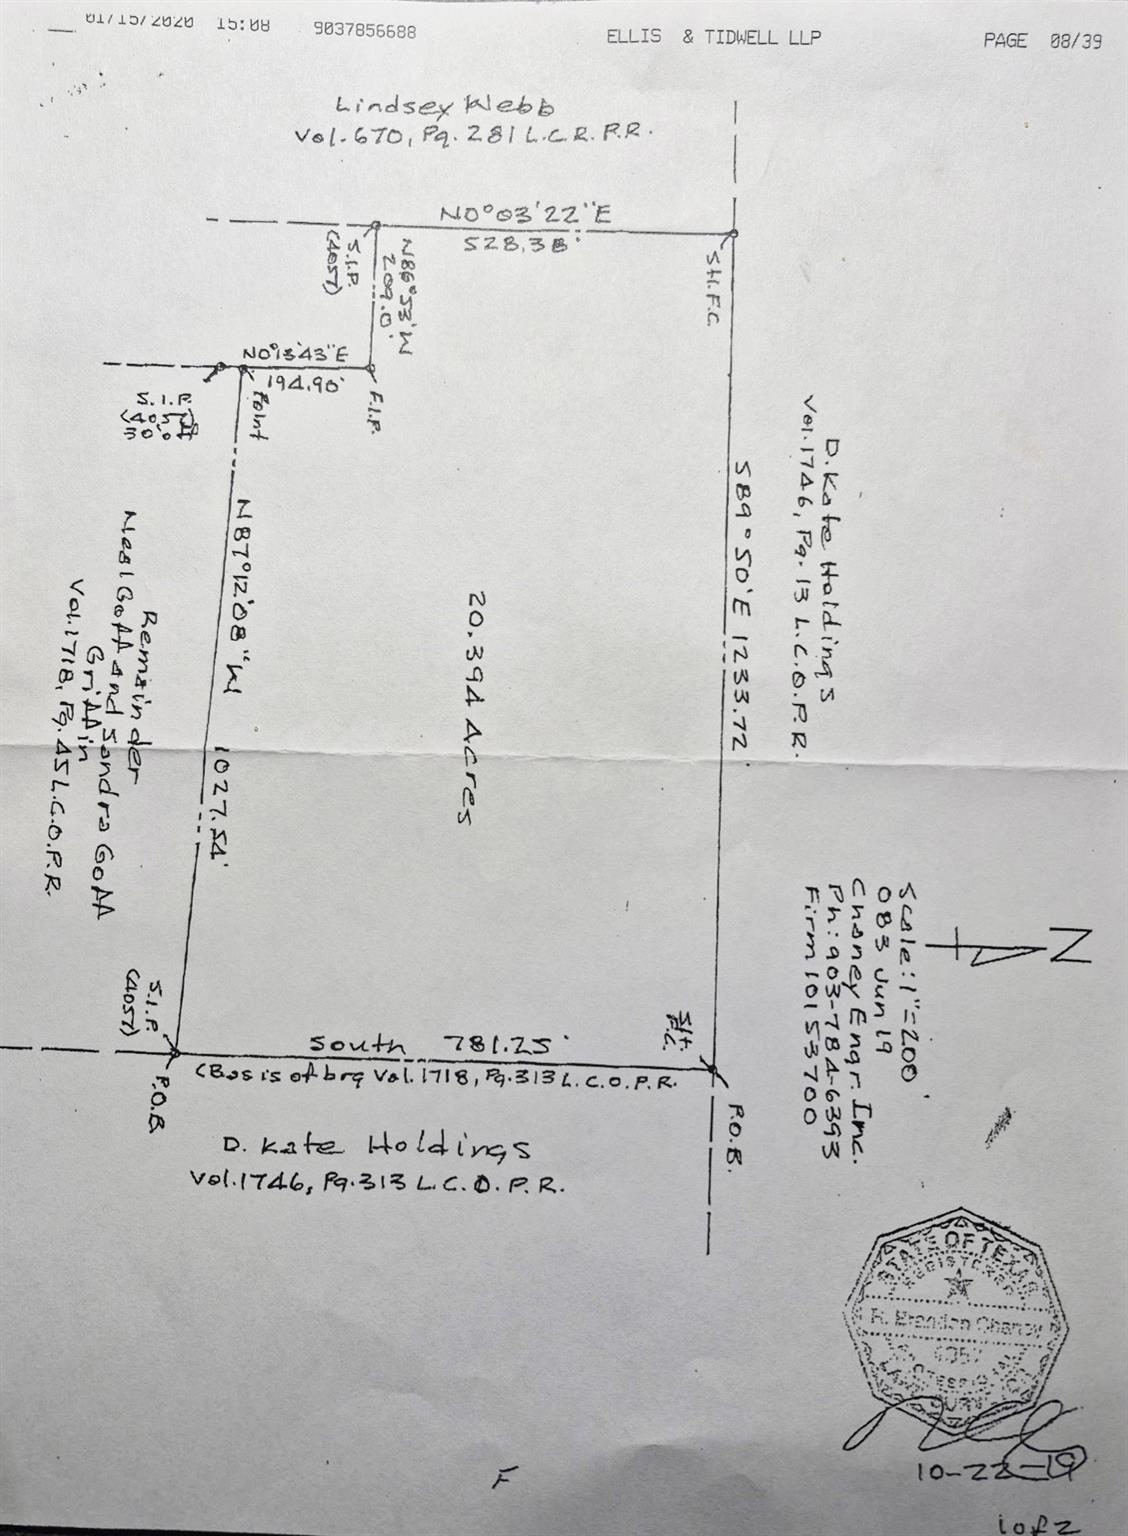 01/15/2020 15:08 9037856688 ELLIS & TIDWELL LLP PAGE 08/39
Lindsey Webb
Vol. 670, Pg. 281 L.C.R.P.R.
N0°03'22"E
528.38'
S.I.P.
(4057)
N86°53'W
209.0'
S.H.F.C.
N0°13'43"E
194.90'
S.I.P.
(4057)
30.0'
Point
F.I.P.
D. Kate Holdings
Vol. 1746, Pg. 13 L.C.O.P.R.
S89°50'E 1233.72'
N87°12'08"W 1027.54'
20.394 Acres
Remainder
Neal Goff and Sandra Goff
Griffin
Vol. 1718, Pg. 45 L.C.O.P.R.
N
Scale: 1"=200'
083 Jun 19
Chaney Engr. Inc.
Ph: 903-784-6393
Firm 10153700
S.I.P.
(4057)
P.O.B.
S.H.
F.C.
P.O.B.
South 781.25'
(Basis of brg Vol. 1718, Pg. 313 L.C.O.P.R.
D. Kate Holdings
Vol. 1746, Pg. 313 L.C.O.P.R.
STATE OF TEXAS
REGISTERED
R. Brandon Chaney
4057
10-22-19
F
1 of 2